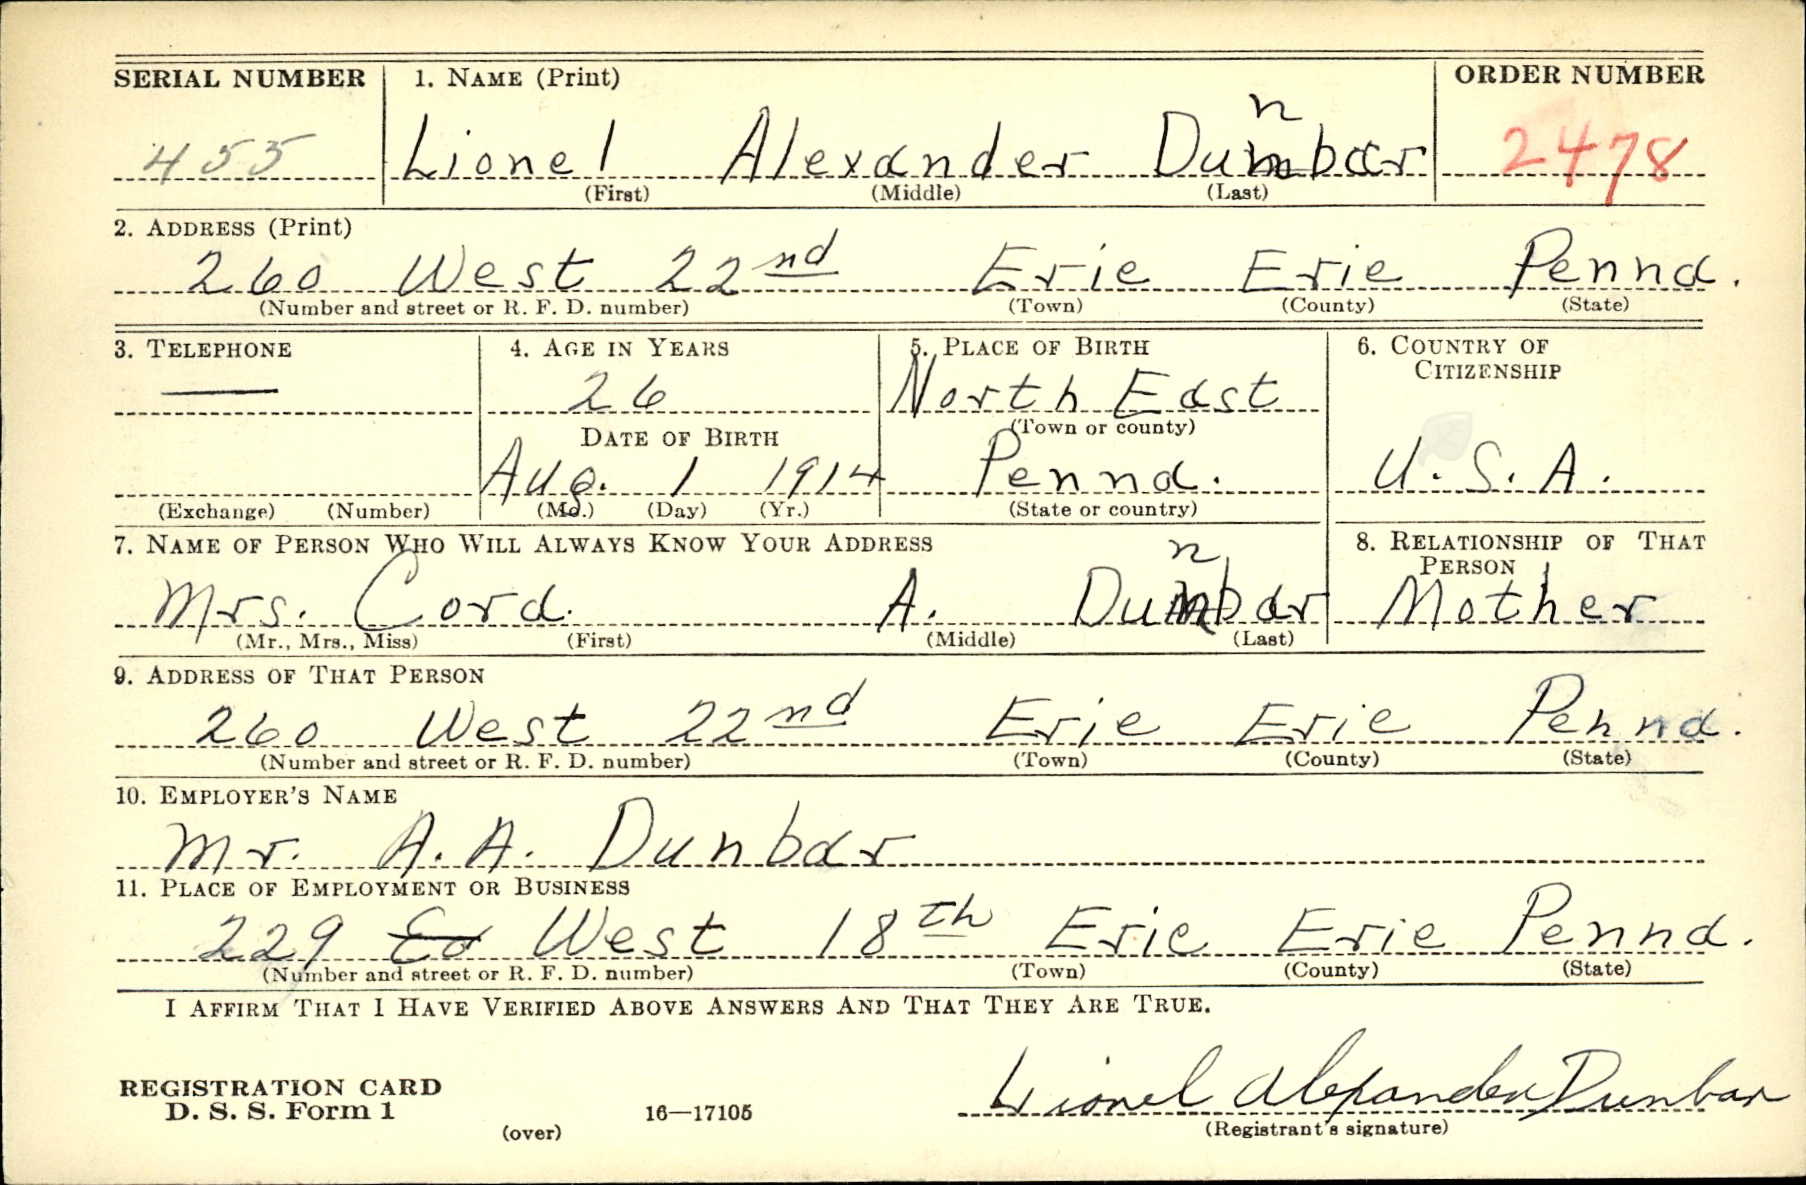 SERIAL NUMBER 1. NAME (Print) ORDER NUMBER
455 Lionel Alexander Dunbar 2478
(First) (Middle) (Last)
2. ADDRESS (Print)
260 West 22nd Erie Erie Penna.
(Number and street or R. F. D. number) (Town) (County) (State)
3. TELEPHONE 4. AGE IN YEARS 5. PLACE OF BIRTH 6. COUNTRY OF CITIZENSHIP
— 26 North East
DATE OF BIRTH (Town or county)
Aug. 1 1914 Penna. U. S. A.
(Exchange) (Number) (Mo.) (Day) (Yr.) (State or country)
7. NAME OF PERSON WHO WILL ALWAYS KNOW YOUR ADDRESS 8. RELATIONSHIP OF THAT PERSON
Mrs. Cora A. Dunbar Mother
(Mr., Mrs., Miss) (First) (Middle) (Last)
9. ADDRESS OF THAT PERSON
260 West 22nd Erie Erie Penna.
(Number and street or R. F. D. number) (Town) (County) (State)
10. EMPLOYER'S NAME
Mr. A. A. Dunbar
11. PLACE OF EMPLOYMENT OR BUSINESS
229 West 18th Erie Erie Penna.
(Number and street or R. F. D. number) (Town) (County) (State)
I AFFIRM THAT I HAVE VERIFIED ABOVE ANSWERS AND THAT THEY ARE TRUE.
REGISTRATION CARD
D. S. S. Form 1 16—17105 Lionel Alexander Dunbar
(over) (Registrant's signature)